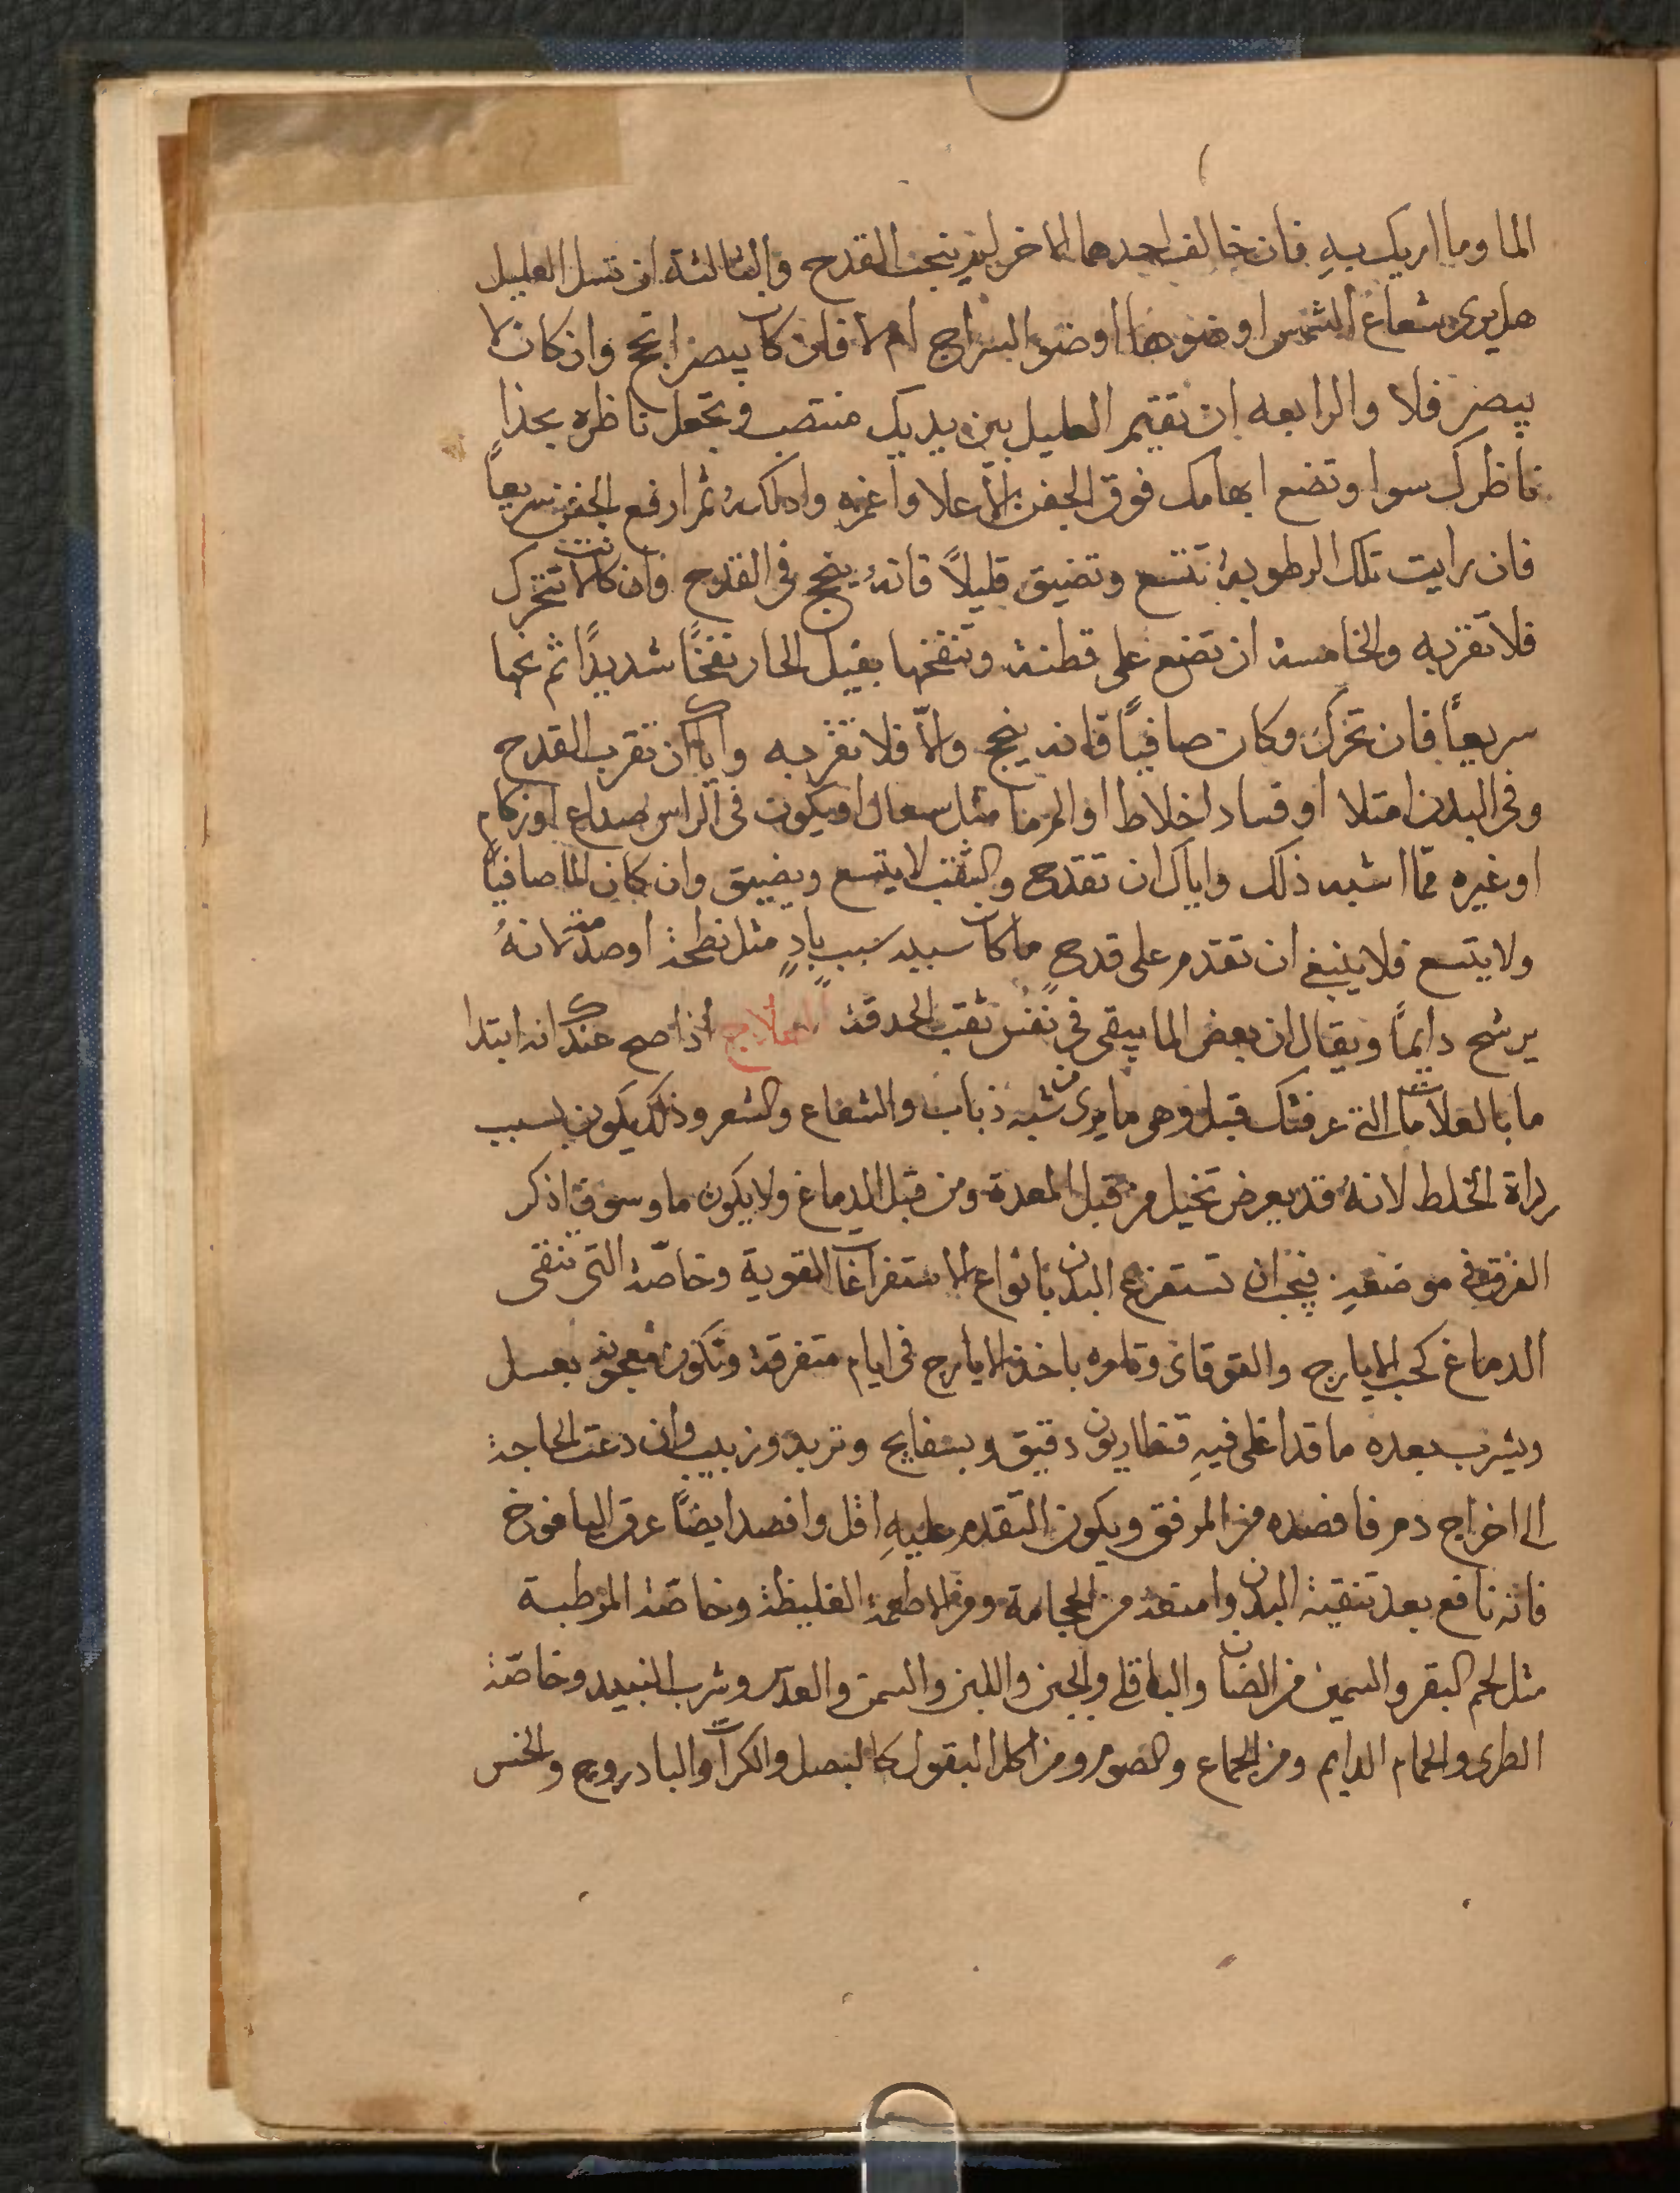 الما وما اريك به فان خالف احدهما الاخر لم ينجب القدح والثالثة ان تسل العليل
هل يرى شعاع الشمس او ضوها او ضو السراج ام لا فان كان يبصر انجح وان كان لا
يبصر فلا والرابعه ان تقيم العليل بين يديك منتصب وتجعل ناظره بحذا
ناظرك سوا وتضع ابهامك فوق الجفن الاعلا واغمزه وادلكه ثم ارفع الجفن سريعاً
فان رايت تلك الرطوبة تتسع وتضيق قليلاً فانه ينجح في القدح وان كانت لا تتحرك
فلا تقربه والخامسة ان تضع على قطنة وتنفخها بقيل الحار نفخاً شديداً ثم نحها
سريعاً فان تحرك وكان صافياً فانه ينجح والّا فلا تقربه واياك ان تقرب القدح
وفي البدن امتلا او فساد اخلاط او المرضا مثل سعال او يكون في الراس صداع او زكام
او غيره ممّا اشبه ذلك واياك ان تقدح والثقب لا يتسع ويضيق وان كان الما صافياً
ولا يتسع فلا ينبغي ان تقدم على قدح ما كان سببه سبب بادٍ مثل نطحة او صدمة لانهُ
يرشح دايماً ويقال ان بعض الما يبقى في نفس ثقب الحدقة العلاج اذا صح عندك انه ابتدا
ما بالعلامات التي عرفتك قبل وهو ما يرى من شبه ذباب والشعاع والشعر وذلك يكون بسبب
رداة الخلط لانهُ قد يعرض تخيل من قبل المعدة ومن قبل الدماغ ولا يكون ما وسوف اذكر
الفرق في موضعه فيجب ان تستفرغ البدن بانواع الاستفراغات القوية وخاصّة التي تنقى
الدماغ كحب الايارج والقوقاى وتامره باخذ الايارج في ايام متفرقة وتكون معجونه بعسل
ويشرب بعده ما قد اغلى فيهِ قنطاريون دقيق وبسفايج وتربد وزبيب وان دعت الحاجة
الى اخراج دم فافصده من المرفق ويكون التقدم عليهِ اقل وافصد ايضاً عرق اليافوخ
فانه نافع بعد تنقية البدن وامنعه من الحجامة ومن الاطعمة الغليظة وخاصّة المرطبة
مثل لحم البقر والسمين من الضان والباقلى والجبن واللبن والسمن والعدس وشرب النبيد وخاصّة
الطرى والحمام الدايم ومن الجماع والصوم ومن اكل البقول كالبصل والكراث والبادروج والخس